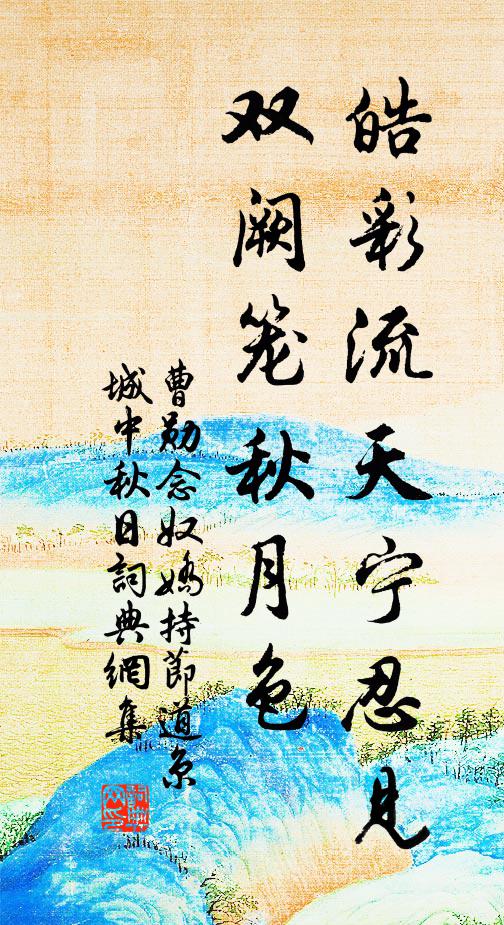 皓彩流天宁忍见
双阙笼秋月色
曹勋念奴娇持節道京
城中秋日詞典網集